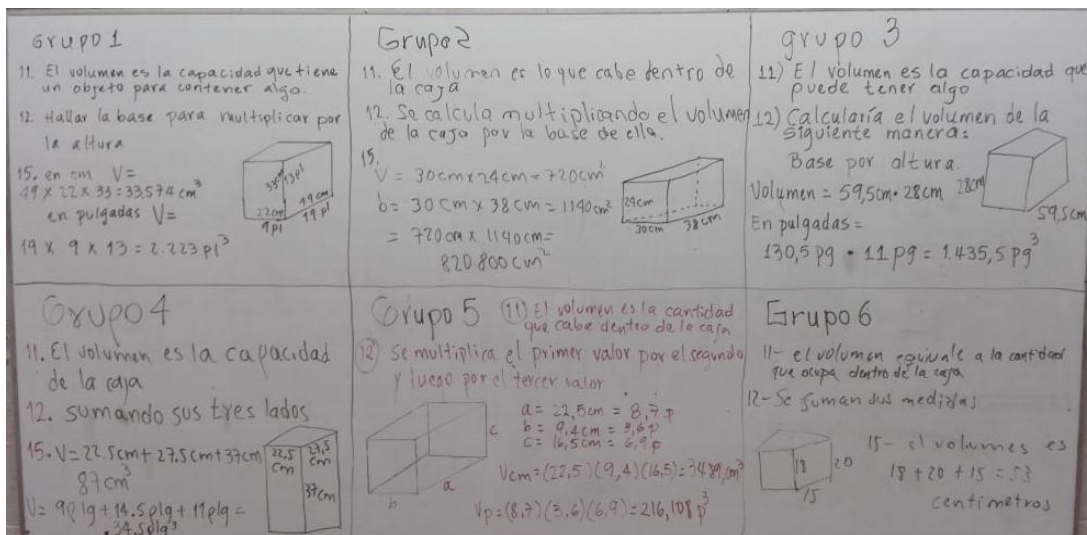 Grupo 1
11. El volumen es la capacidad que tiene
un objeto para contener algo.
12. Hallar la base para multiplicar por
la altura
15. en cm V=
49 x 22 x 33 = 33.574 cm³
en pulgadas V=
19 x 9 x 13 = 2.223 pl³
33cm 13pl
22cm
9pl
49cm
19 pl
Grupo 2
11. El volumen es lo que cabe dentro de
la caja
12. Se calcula multiplicando el volumen
de la caja por la base de ella.
15.
V = 30cm x 24cm = 720cm²
b = 30 cm x 38 cm = 1140 cm²
= 720 cm x 1140 cm =
820.800 cm²
24cm
30cm
38cm
grupo 3
11) El volumen es la capacidad que
puede tener algo
12) Calcularía el volumen de la
siguiente manera:
Base por altura.
Volumen = 59,5cm · 28cm
En pulgadas =
130,5 pg · 11 pg = 1.435,5 pg³
28cm
59,5cm
Grupo 4
11. El volumen es la capacidad
de la caja
12. sumando sus tres lados
15. V= 22.5cm + 27.5cm + 37cm
87cm³
V= 9plg + 14.5plg + 11plg =
34.5plg³
22,5
cm
27,5
cm
37cm
Grupo 5
11) El volumen es la cantidad
que cabe dentro de la caja
12) Se multiplica el primer valor por el segundo
y luego por el tercer valor
a = 22,5cm = 8,7p
b = 9,4cm = 3,6p
c = 16,5cm = 6,9p
Vcm = (22,5)(9,4)(16,5) = 3489,cm³
Vp = (8,7)(3,6)(6,9) = 216,108 p³
c
a
b
Grupo 6
11- el volumen equivale a la cantidad
que ocupa dentro de la caja
12- Se suman sus medidas
15- el volumes es
18 + 20 + 15 = 53
centimetros
18
20
15